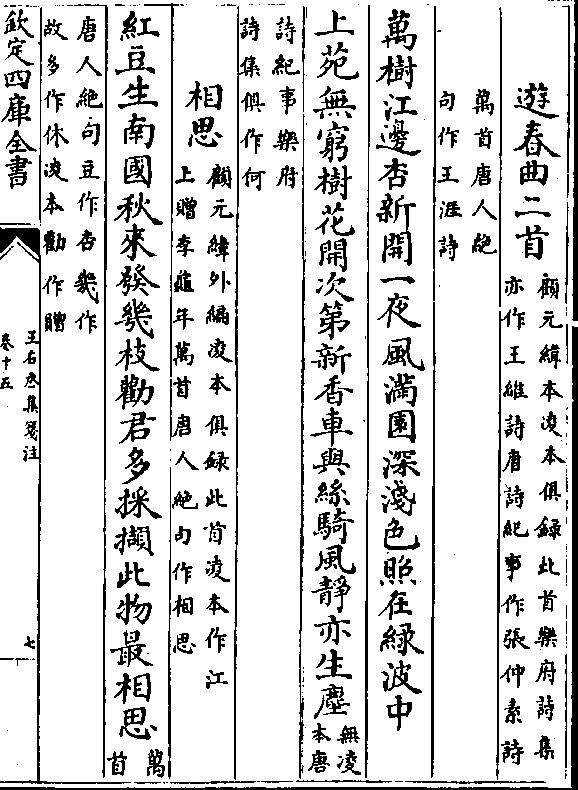 遊春曲二首
顧元緯本凌本俱録此首樂府詩集
亦作王維詩唐詩紀事作張仲素詩
萬首唐人絶
句作王涯詩
萬樹江邊杏新開一夜風滿園深淺色照在緑波中
上苑無窮樹花開次第新香車與絲騎風靜亦生塵
無凌
本唐
詩紀事樂府
詩集俱作何
相思
顧元緯外編凌本俱録此首凌本作江
上贈李龜年萬首唐人絶句作相思
紅豆生南國秋來發幾枝勸君多採擷此物最相思
萬
首
唐人絶句豆作杏幾作
故多作休凌本勸作贈
欽定四庫全書
王右丞集箋注
卷十五
七